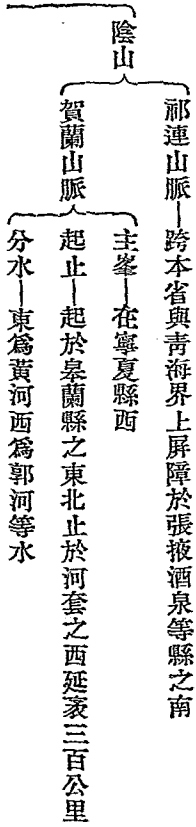 陰山
祁連山脈—跨本省與靑海界上屛障於張掖酒泉等縣之南
賀蘭山脈
主峯—在寧夏縣西
起止—起於皋蘭縣之東北止於河套之西延袤三百公里
分水—東爲黃河西爲郭河等水